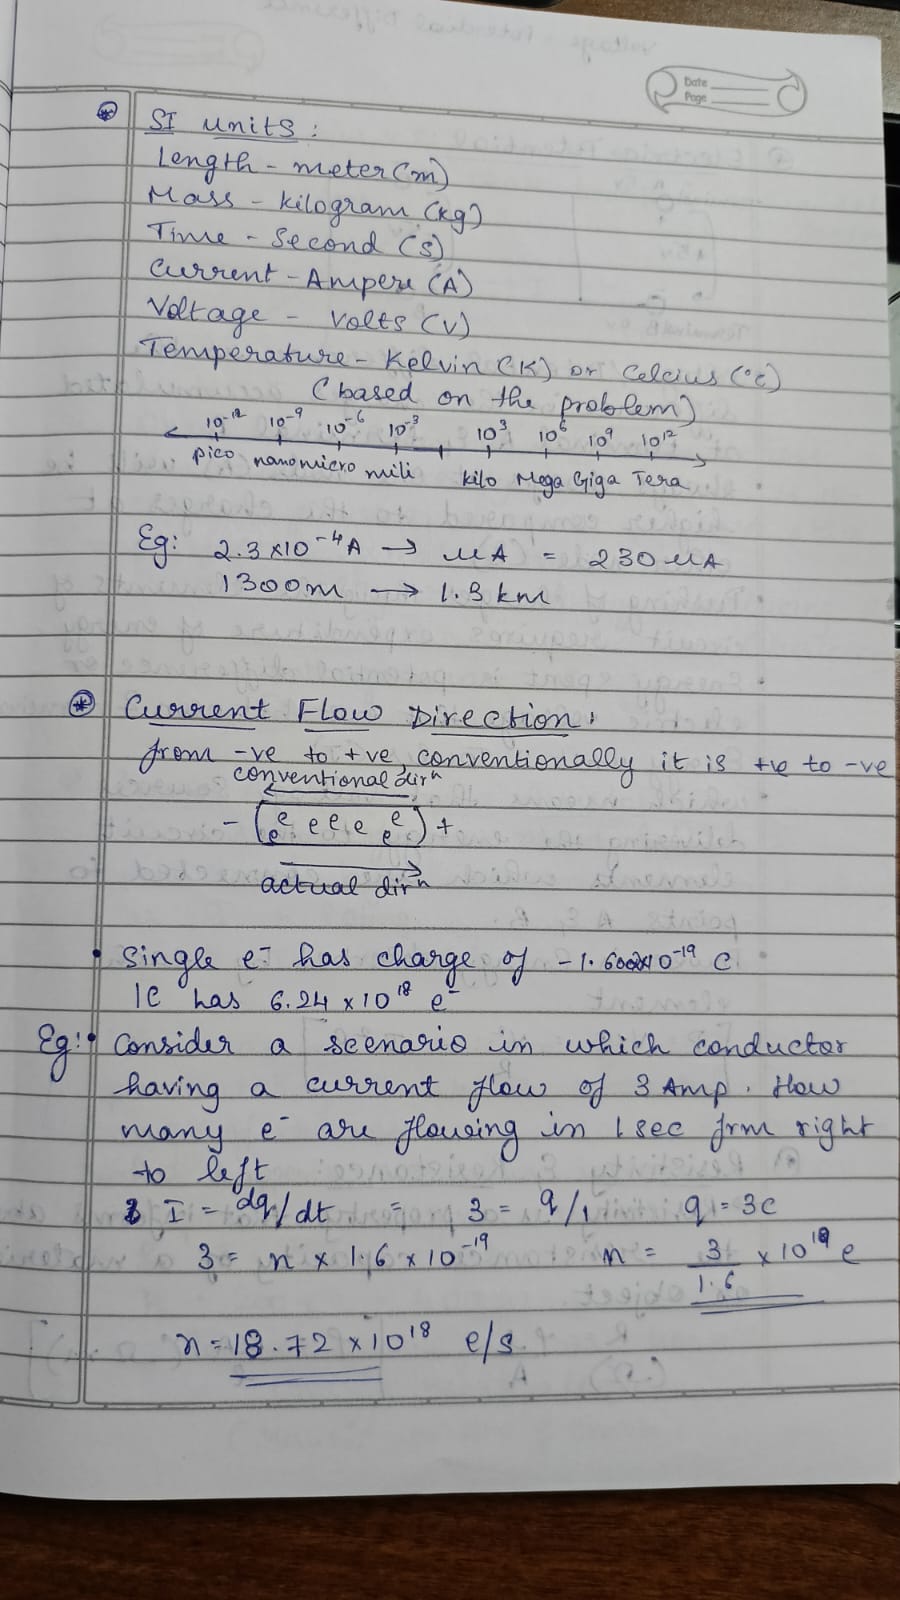 Date
Page
SI units:
Length - meter (m)
Mass - kilogram (kg)
Time - Second (s)
Current - Ampere (A)
Voltage - Volts (V)
Temperature - Kelvin (K) or Celcius (°C)
(based on the problem)
10⁻¹² 10⁻⁹ 10⁻⁶ 10⁻³ 10³ 10⁶ 10⁹ 10¹²
pico nano micro mili kilo Mega Giga Tera
Eg: 2.3×10⁻⁴A → μA = 230 μA
1300m → 1.3 km
Current Flow Direction:
from -ve to +ve, conventionally it is +ve to -ve
conventional dirⁿ
- (e e e e e e e) +
actual dirⁿ
• Single e⁻ has charge of -1.602×10⁻¹⁹ C
1C has 6.24 × 10¹⁸ e⁻
Eg: • Consider a scenario in which conductor
having a current flow of 3 Amp. How
many e⁻ are flowing in 1 sec frm right
to left
I = dq/dt = 3 = q/1 q = 3C
3 = n × 1.6 × 10⁻¹⁹ n = 3/1.6 × 10¹⁹ e
n = 18.72 × 10¹⁸ e/s